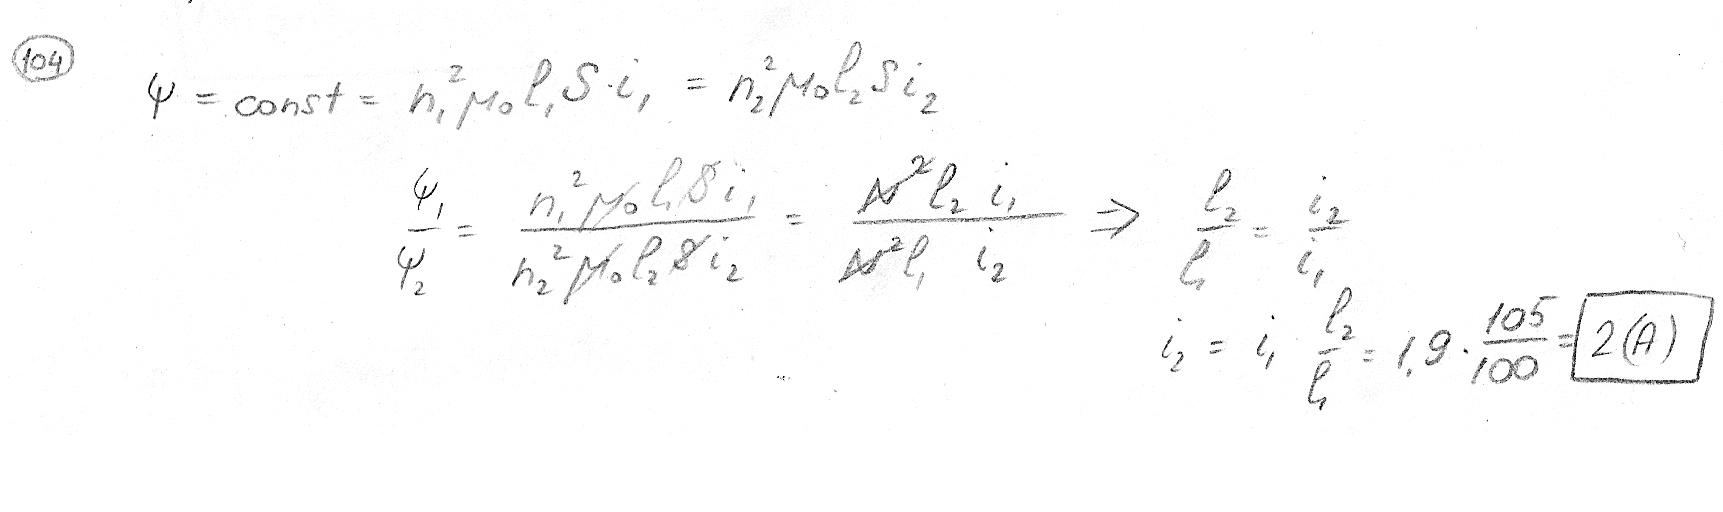 104
ψ = const = n₁² μ₀ l₁ S · i₁ = n₂² μ₀ l₂ S i₂
ψ₁/ψ₂ = n₁² μ₀ l₁ S i₁ / n₂² μ₀ l₂ S i₂ = N² l₂ i₁ / N² l₁ i₂ ⇒ l₂/l₁ = i₂/i₁
i₂ = i₁ l₂/l₁ = 1,9 · 105/100 = 2(A)